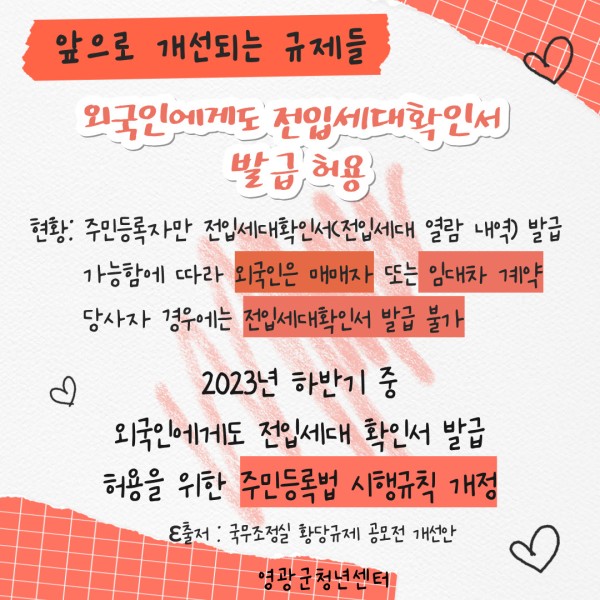 앞으로 개선되는 규제들
외국인에게도 전입세대확인서
발급 허용
현황: 주민등록자만 전입세대확인서(전입세대 열람 내역) 발급
가능함에 따라 외국인은 매매자 또는 임대차 계약
당사자 경우에는 전입세대확인서 발급 불가
2023년 하반기 중
외국인에게도 전입세대 확인서 발급
허용을 위한 주민등록법 시행규칙 개정
ε출저 : 국무조정실 황당규제 공모전 개선안
영광군청년센터